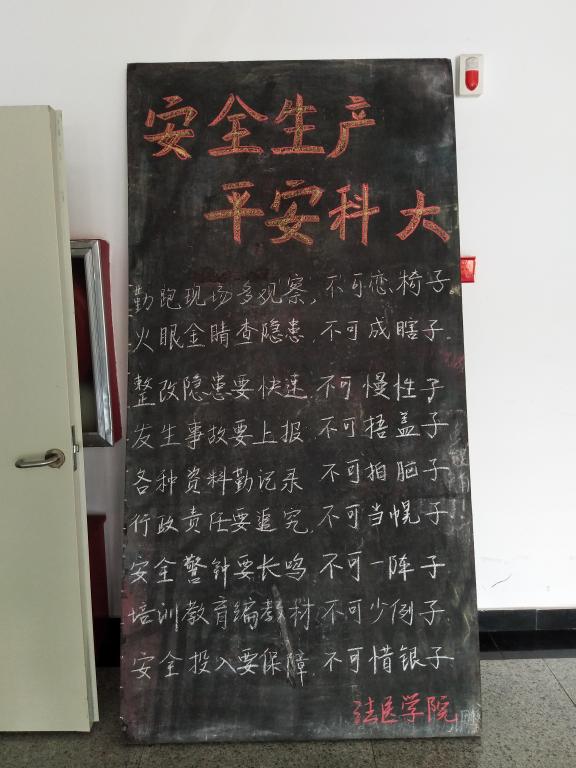 安全生产
平安科大
勤跑现场多观察，不可恋椅子
火眼金睛查隐患，不可成瞎子.
整改隐患要快速，不可慢性子
发生事故要上报，不可捂盖子
各种资料勤记录 不可拍脑子
行政责任要追究，不可当幌子
安全警钟要长鸣 不可一阵子
培训教育编教材 不可少例子
安全投入要保障，不可惜银子
法医学院